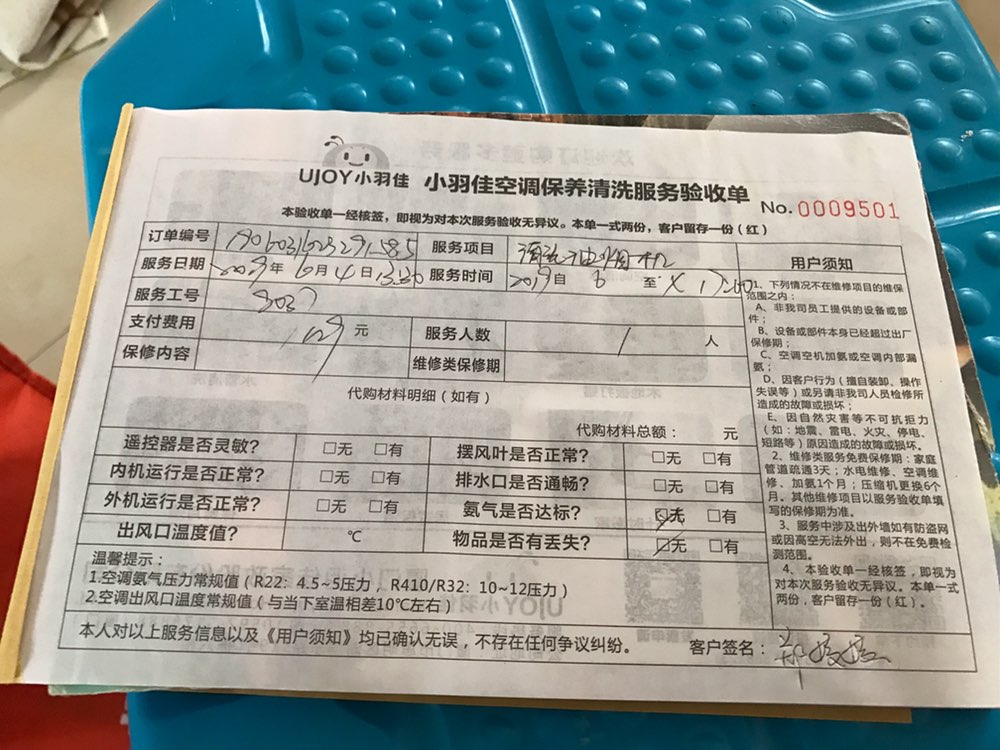 UJOY小羽佳 小羽佳空调保养清洗服务验收单
No. 0009501
本验收单一经核签，即视为对本次服务验收无异议。本单一式两份，客户留存一份（红）
订单编号 服务项目 清洗油烟机
服务日期 2019年6月4日13:30 服务时间 2019自 6 至
服务工号 8037
支付费用 129 元 服务人数 1 人
保修内容 维修类保修期
代购材料明细（如有）
代购材料总额： 元
遥控器是否灵敏? □无 □有 摆风叶是否正常? □无 □有
内机运行是否正常? □无 □有 排水口是否通畅? □无 □有
外机运行是否正常? □无 □有 氨气是否达标? □无 □有
出风口温度值? ℃ 物品是否有丢失? □无 □有
温馨提示：
1.空调氨气压力常规值（R22: 4.5~5压力，R410/R32: 10~12压力）
2.空调出风口温度常规值（与当下室温相差10℃左右）
本人对以上服务信息以及《用户须知》均已确认无误，不存在任何争议纠纷。 客户签名：
用户须知
1、下列情况不在维修项目的维保
范围之内：
A、非我司员工提供的设备或部
件；
B、设备或部件本身已经超过出厂
保修期；
C、空调空机加氨或空调内部漏
氨；
D、因客户行为（擅自装卸、操作
失误等）或另请非我司人员检修所
造成的故障或损坏；
E、因自然灾害等不可抗拒力
（如：地震、雷电、火灾、停电、
短路等）原因造成的故障或损坏。
2、维修类服务免费保修期：家庭
管道疏通3天；水电维修、空调维
修、加氨1个月；压缩机更换6个
月。其他维修项目以服务验收单填
写的保修期为准。
3、服务中涉及出外墙如有防盗网
或因高空无法外出，则不在免费检
测范围。
4、本验收单一经核签，即视为
对本次服务验收无异议。本单一式
两份，客户留存一份（红）。